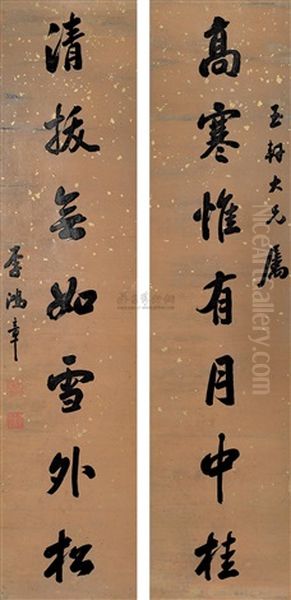 玉軒大兄屬
高寒惟有月中桂
清拔無如雪外松
李鴻章